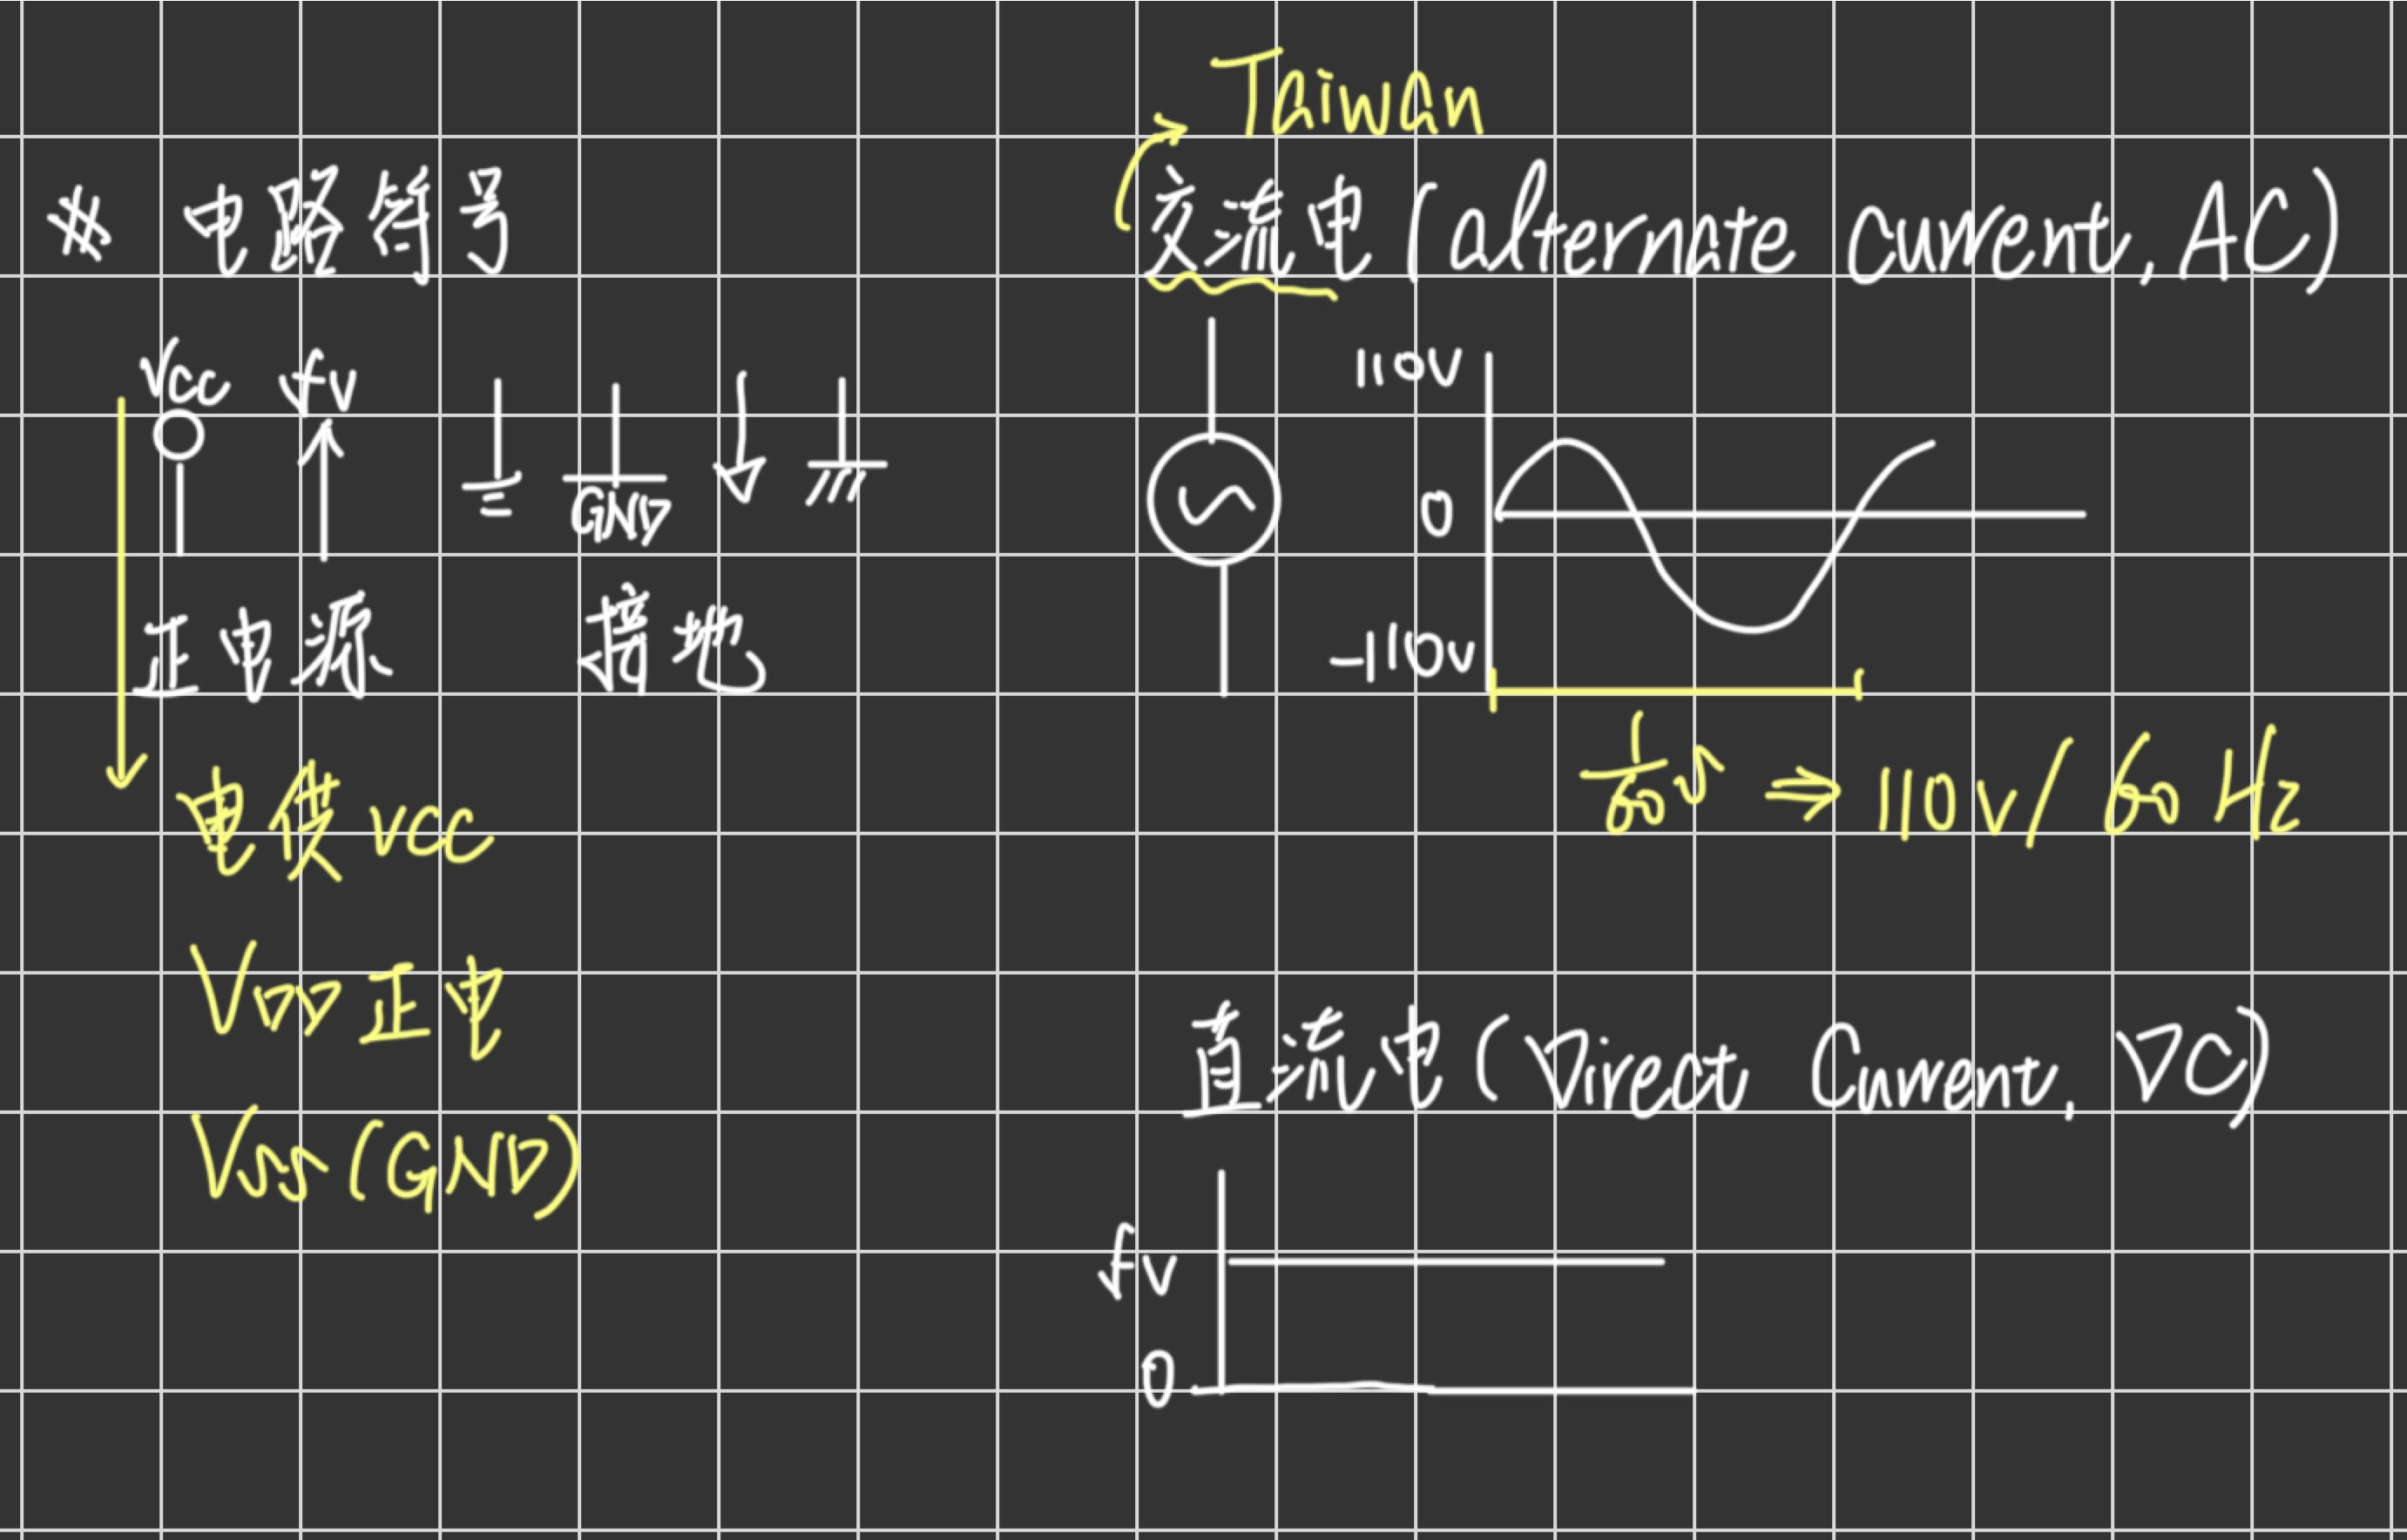 # 电路符号
Vcc
GND
正电源
接地
电供 VCC
VDD 正电
VSS (GND)
Taiwan
交流电 (alternate current, AC)
110V
0
-110V
1/60 s ⇒ 110V/60 Hz
直流电 (Direct Current, DC)
0